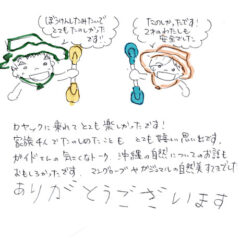 ぼうけんしたみたいで
とてもたのしかった
です!!
たのしかったです!
2才のわたしも
安全でした
カヤックに乗れてとても楽しかったです!
家族4人でたのしめたことも とても嬉しい思い出です。
ガイドさんの気になるトーク、沖縄の自然についてのお話も
おもしろかったです。 マングローブやガジュマルの自然美すてきでした
ありがとうございます